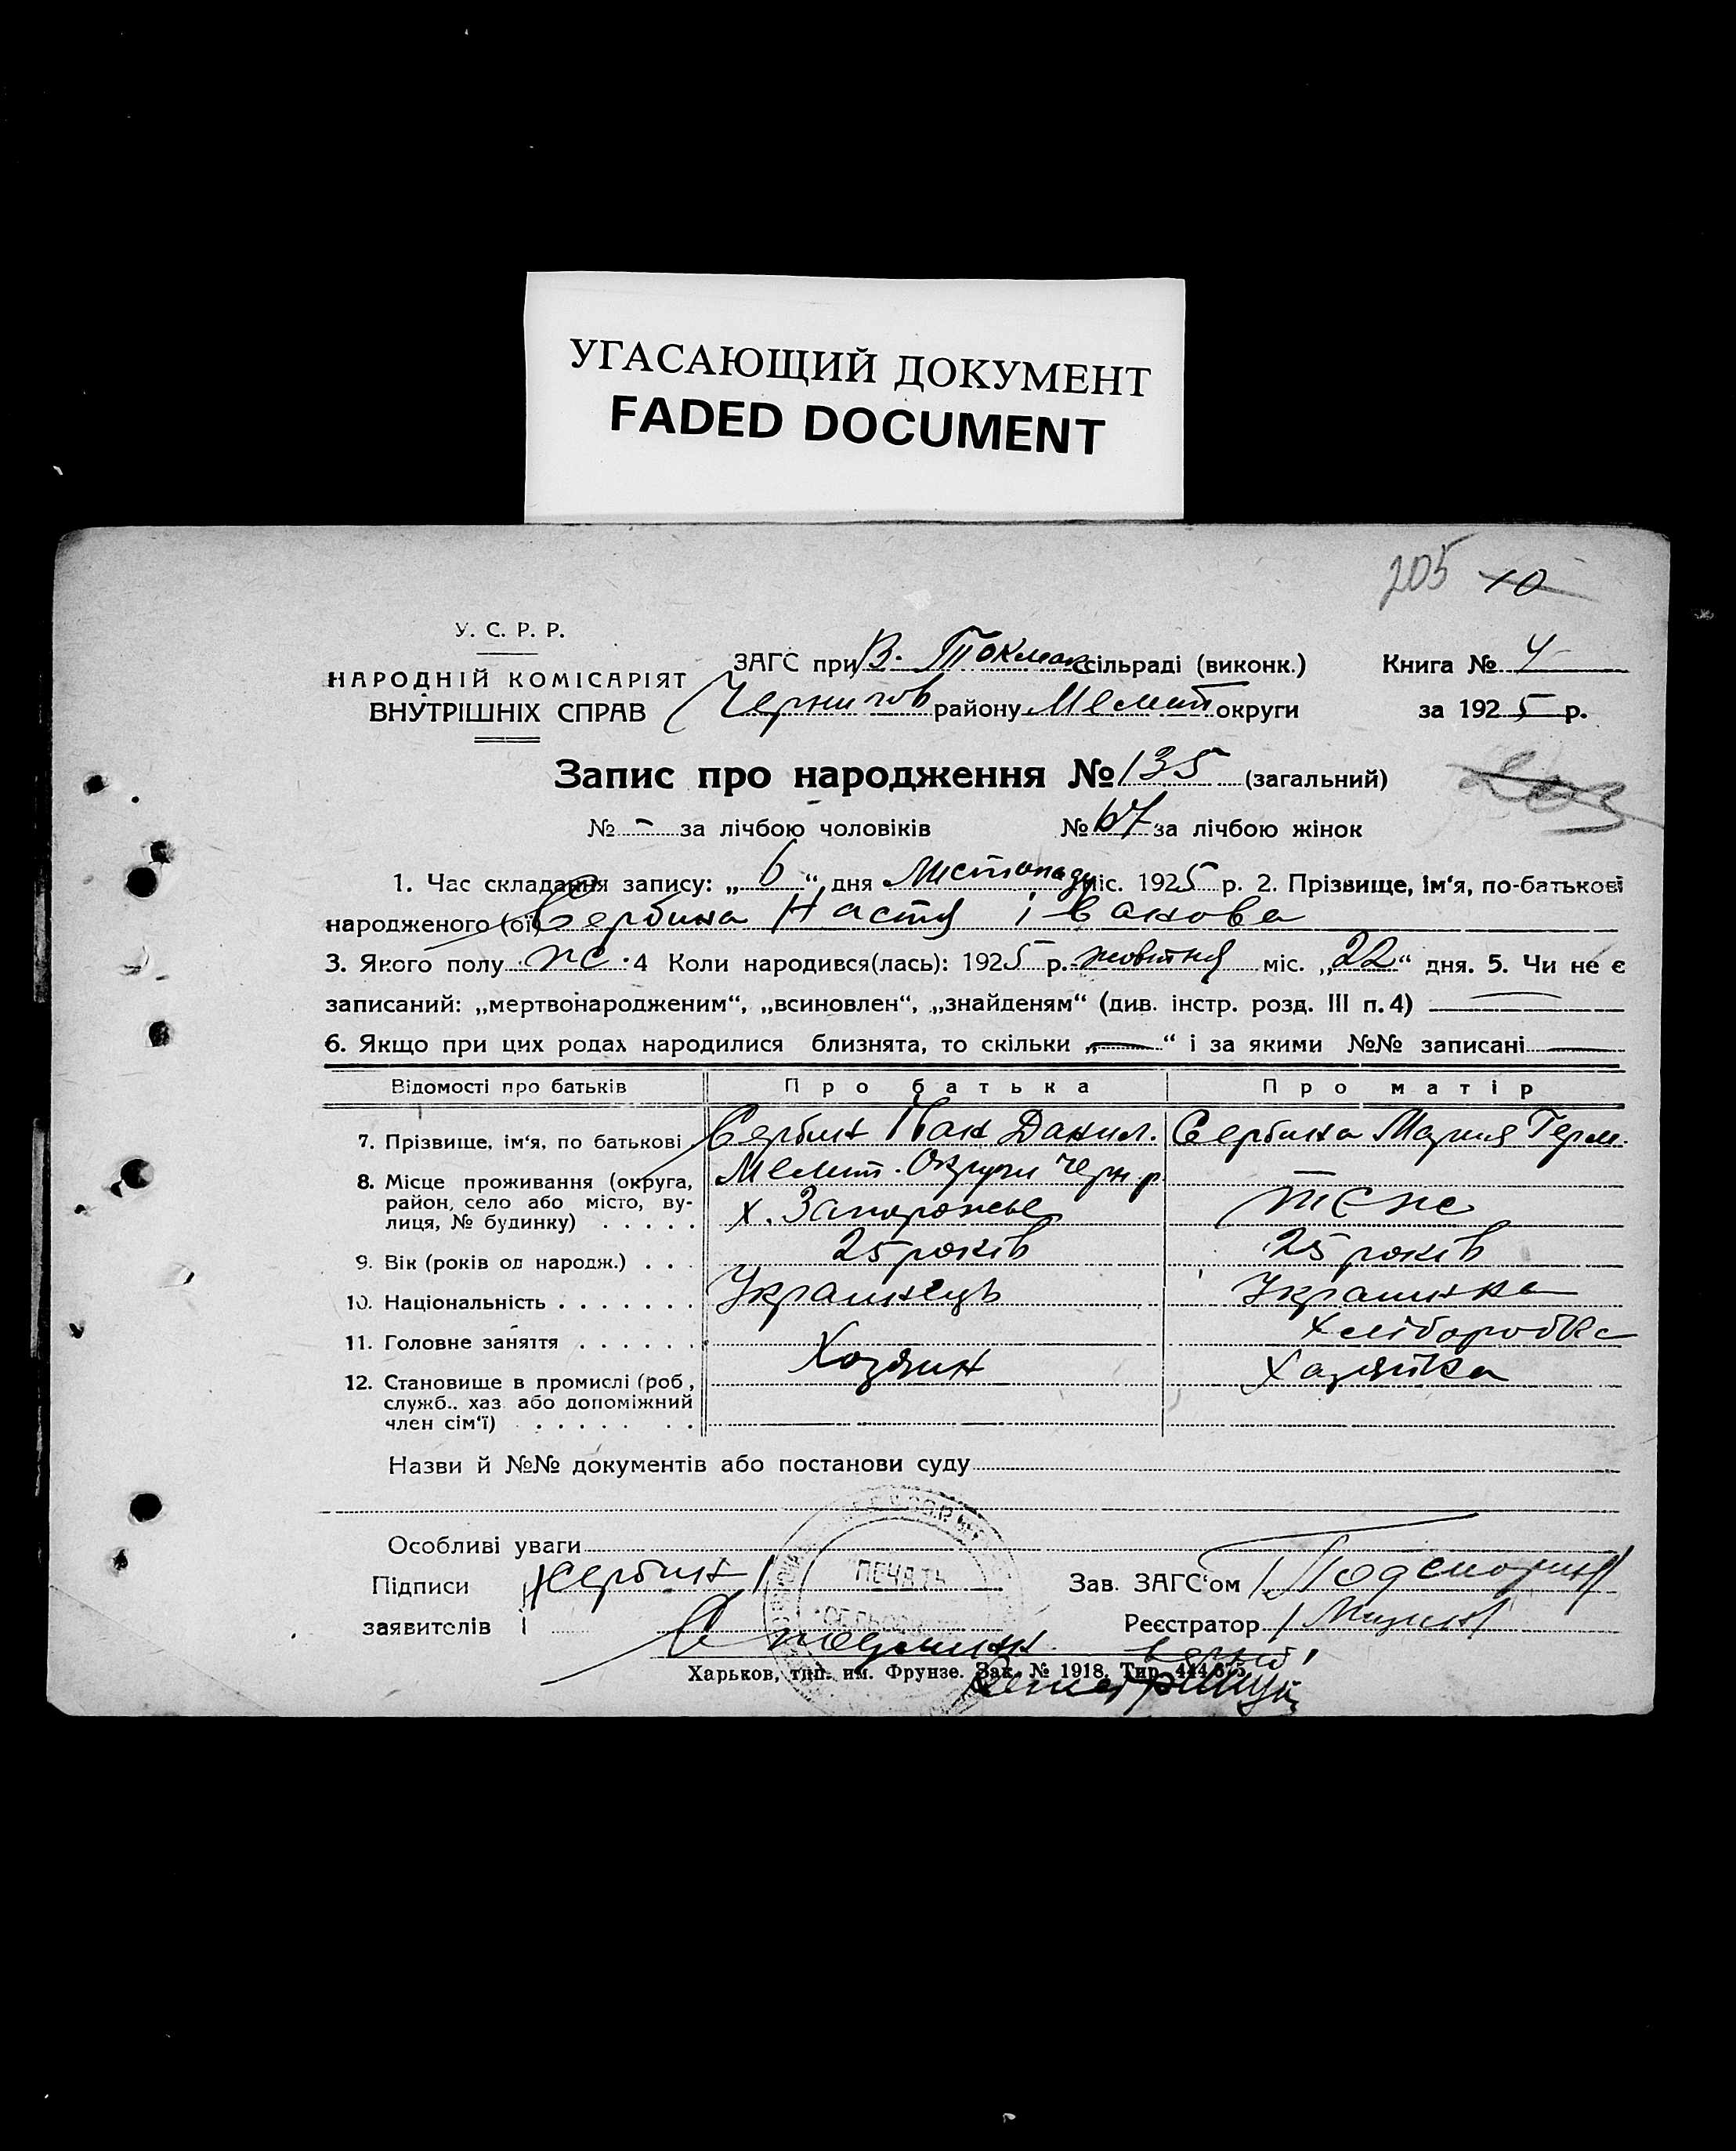 УГАСАЮЩИЙ ДОКУМЕНТ
FADED DOCUMENT
205 10
У. С. Р. Р.
НАРОДНІЙ КОМІСАРІЯТ
ВНУТРІШНІХ СПРАВ
ЗАГС при В. Токмак сільраді (виконк.) Книга № 4
Чернигов району Мелит округи за 1925 р.
Запис про народження № 135 (загальний)
203
№ - за лічбою чоловіків № 67 за лічбою жінок
1. Час складання запису: „ 6 “ дня Листопаду міс. 1925 р. 2. Прізвище, ім'я, по-батькові
народженого (ої) Сербина Настя Іванова
3. Якого полу ж. 4 Коли народився(лась): 1925 р. жовтня міс. „22“ дня. 5. Чи не є
записаний: „мертвонародженим“, „всиновлен“, „знайденям“ (див. інстр. розд. III п. 4) —
6. Якщо при цих родах народилися близнята, то скільки „—“ і за якими №№ записані —
Відомості про батьків Про батька Про матір
7. Прізвище, ім'я, по батькові Сербин Іван Данил. Сербина Мария Герм.
8. Місце проживання (округа, район, село або місто, ву-лиця, № будинку) . . . . . Мелит. Округи Черн. р.
х. Запорожье теж
9. Вік (років од народж.) . . . 25 років 25 років
10. Національність . . . . . . . Украинець Украинка
11. Головне заняття . . . . . . Хліборобка
12. Становище в промислі (роб., служб., хаз. або допоміжний член сім'ї) . . . . . . . Хозяин Хазяйка
Назви й №№ документів або постанови суду
Особливі уваги
Підписи заявителів / Сербин /
ПЕЧАТЬ
Зав. ЗАГС'ом
Реєстратор
Харьков, тип. им. Фрунзе. Зак. № 1918. Тир. 444.675